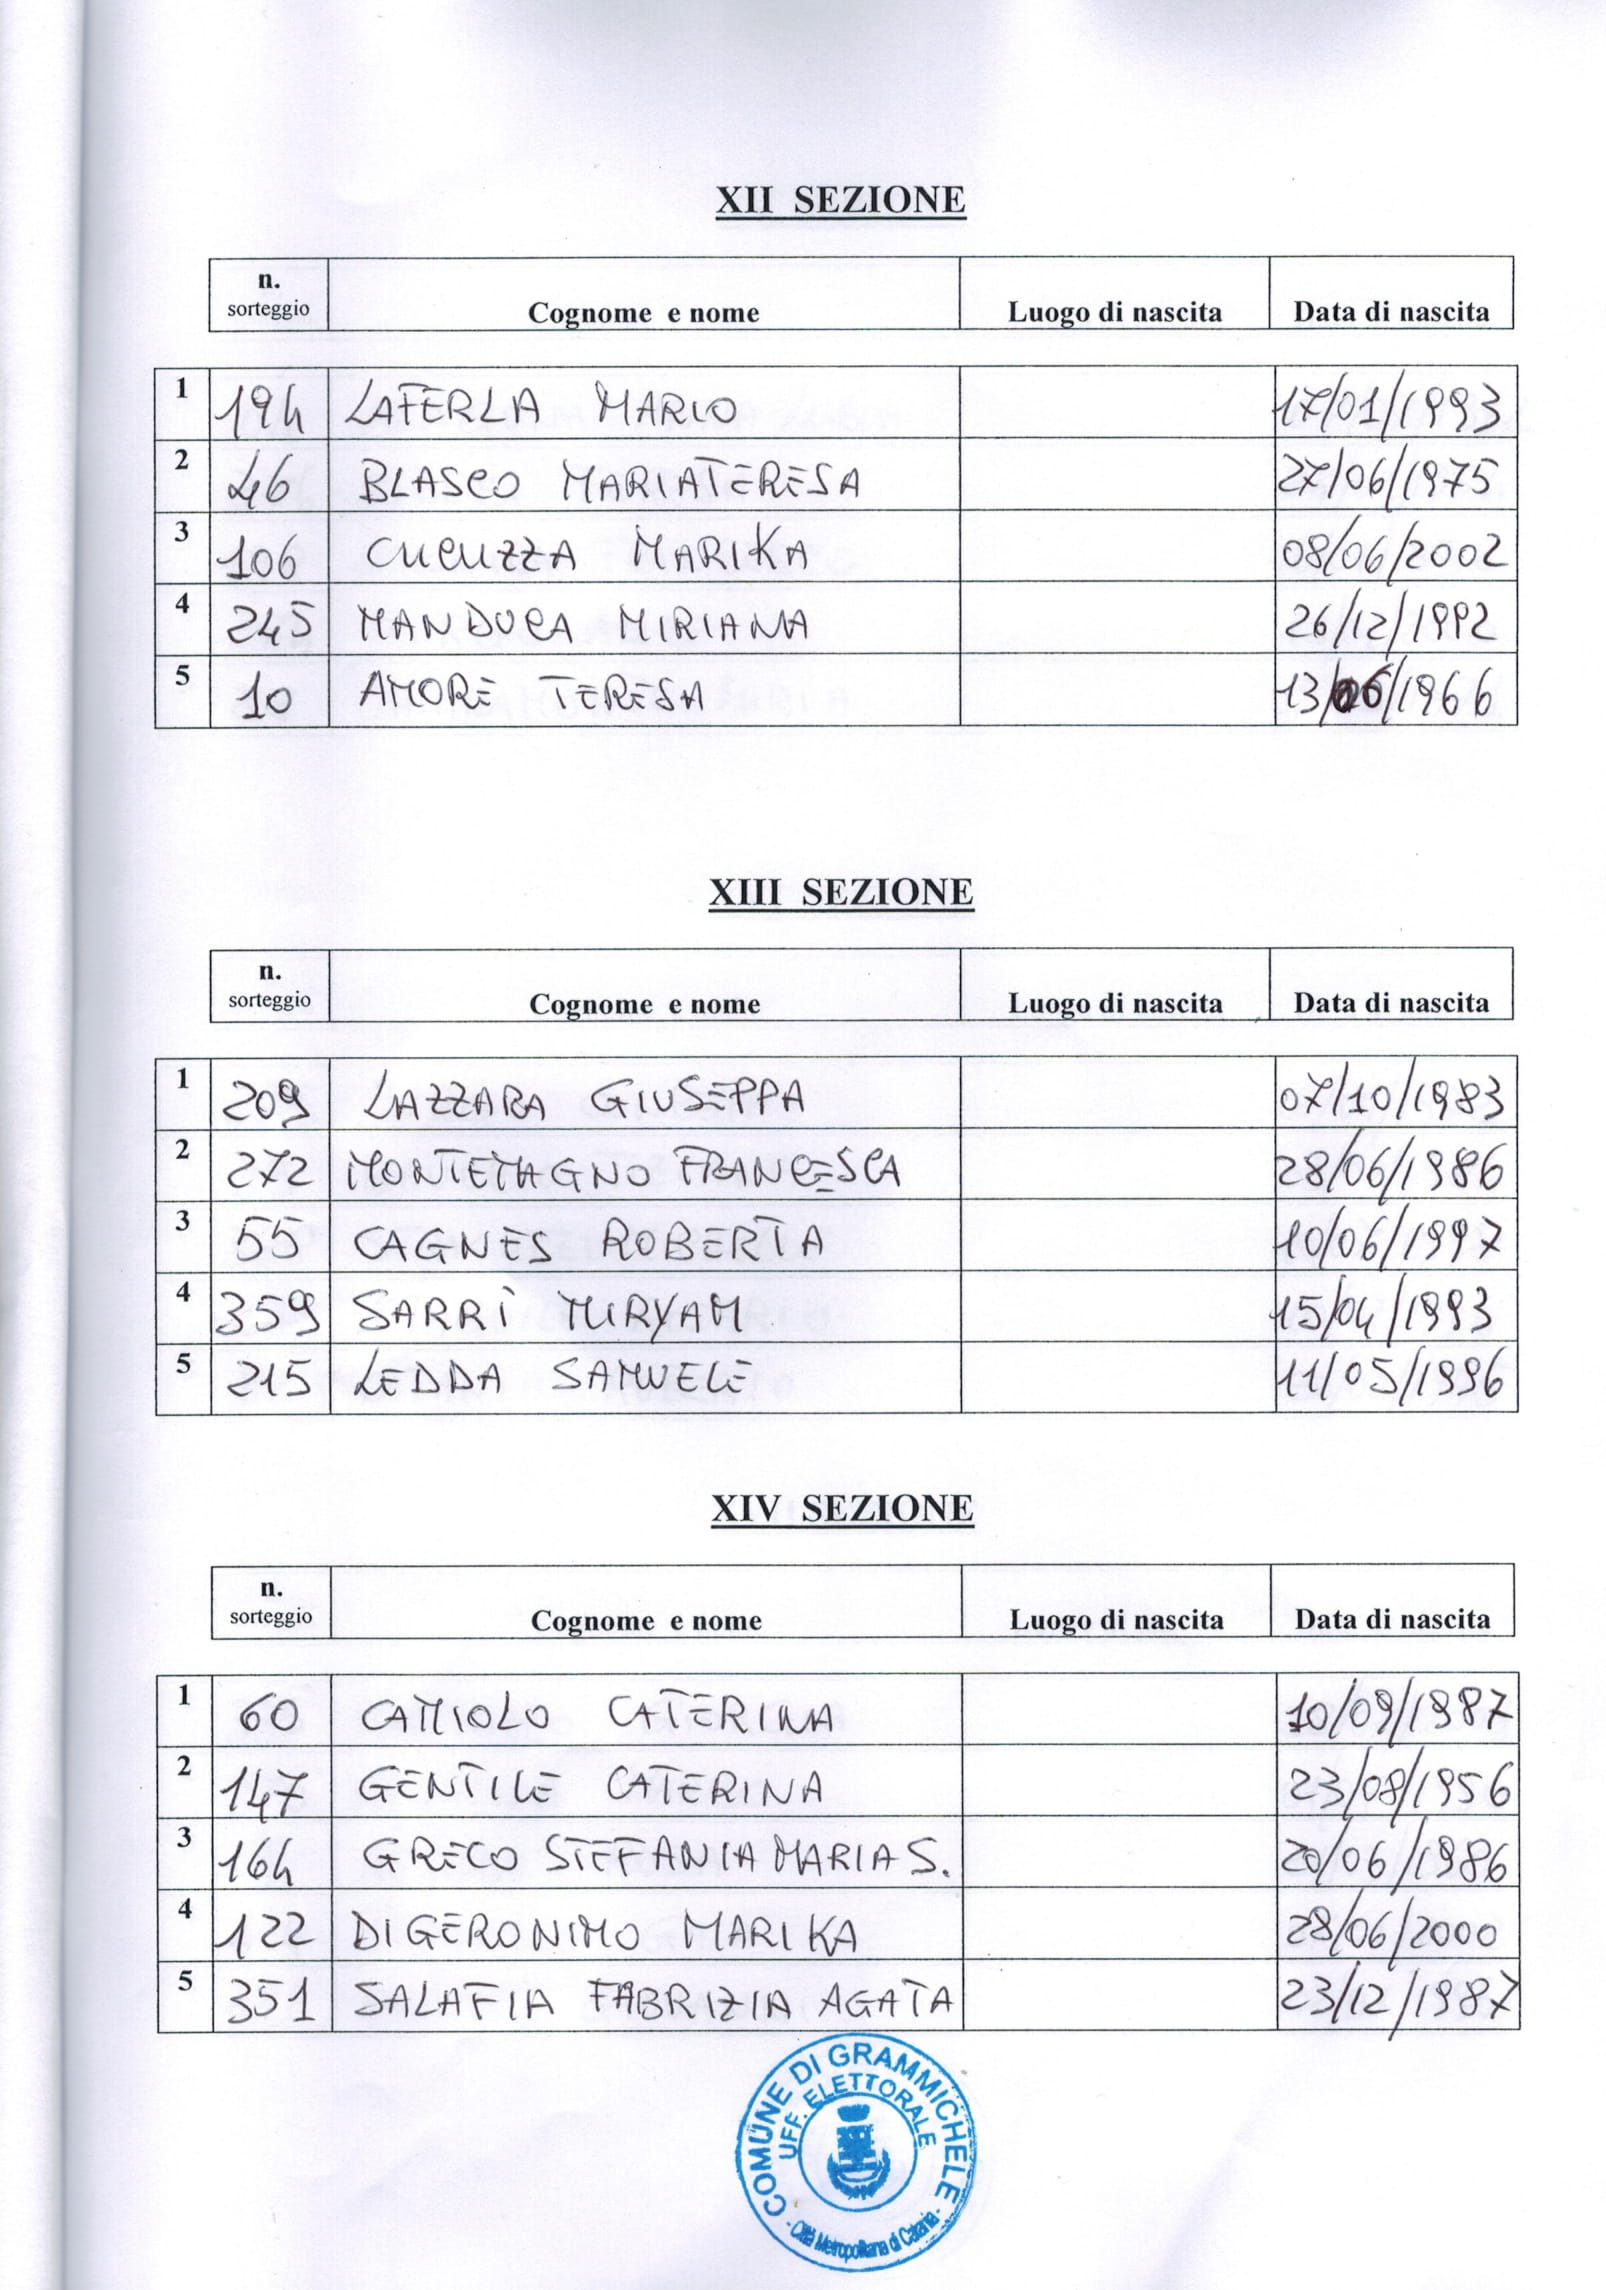 XII SEZIONE
n. sorteggio Cognome e nome Luogo di nascita Data di nascita
1 194 LAFERLA MARIO 17/01/1993
2 46 BLASCO MARIATERESA 27/06/1975
3 106 CUCUZZA MARIKA 08/06/2002
4 245 MANDUCA MIRIANA 26/12/1992
5 10 AMORE TERESA 13/06/1966
XIII SEZIONE
n. sorteggio Cognome e nome Luogo di nascita Data di nascita
1 209 LAZZARA GIUSEPPA 07/10/1983
2 272 MONTEMAGNO FRANCESCA 28/06/1986
3 55 CAGNES ROBERTA 10/06/1997
4 359 SARRÌ MIRYAM 15/04/1993
5 215 LEDDA SAMUELE 11/05/1996
XIV SEZIONE
n. sorteggio Cognome e nome Luogo di nascita Data di nascita
1 60 CAMIOLO CATERINA 10/09/1987
2 147 GENTILE CATERINA 23/08/1956
3 164 GRECO STEFANIA MARIA S. 20/06/1986
4 122 DI GERONIMO MARIKA 28/06/2000
5 351 SALAFIA FABRIZIA AGATA 23/12/1987
COMUNE DI GRAMMICHELE
UFF. ELETTORALE
- Città Metropolitana di Catania -